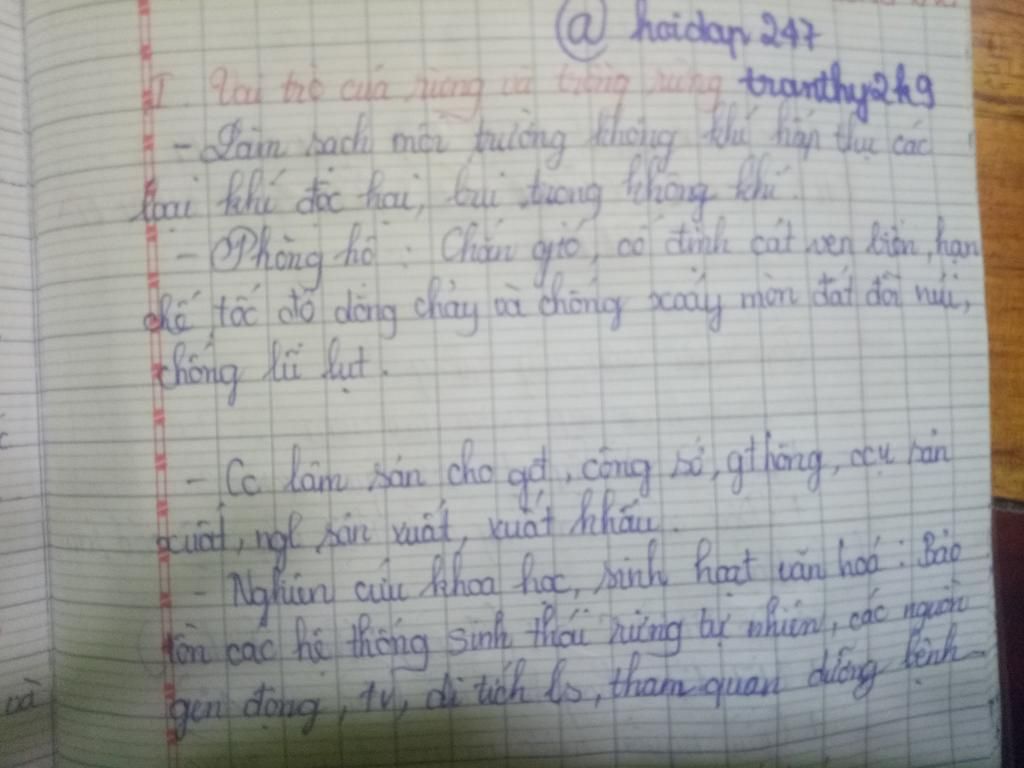 @ hoidap 247
I. Vai trò của rừng và trồng rừng tranthy2k9
- Làm sạch môi trường không khí hấp thụ các
loại khí độc hại, bụi trong không khí.
- Phòng hộ : Chắn gió, cố định cát ven biển, hạn
chế tốc độ dòng chảy và chống xoáy mòn đất đồi núi,
chống lũ lụt.
- Cc lâm sản cho gđ, công sở, gthông, ccụ sản
xuất, ngl sản xuất, xuất khẩu.
- Nghiên cứu khoa học, sinh hoạt văn hoá : Bảo
tồn các hệ thống sinh thái rừng tự nhiên, các nguồn
gen động, tv, di tích ls, tham quan dưỡng bệnh
và